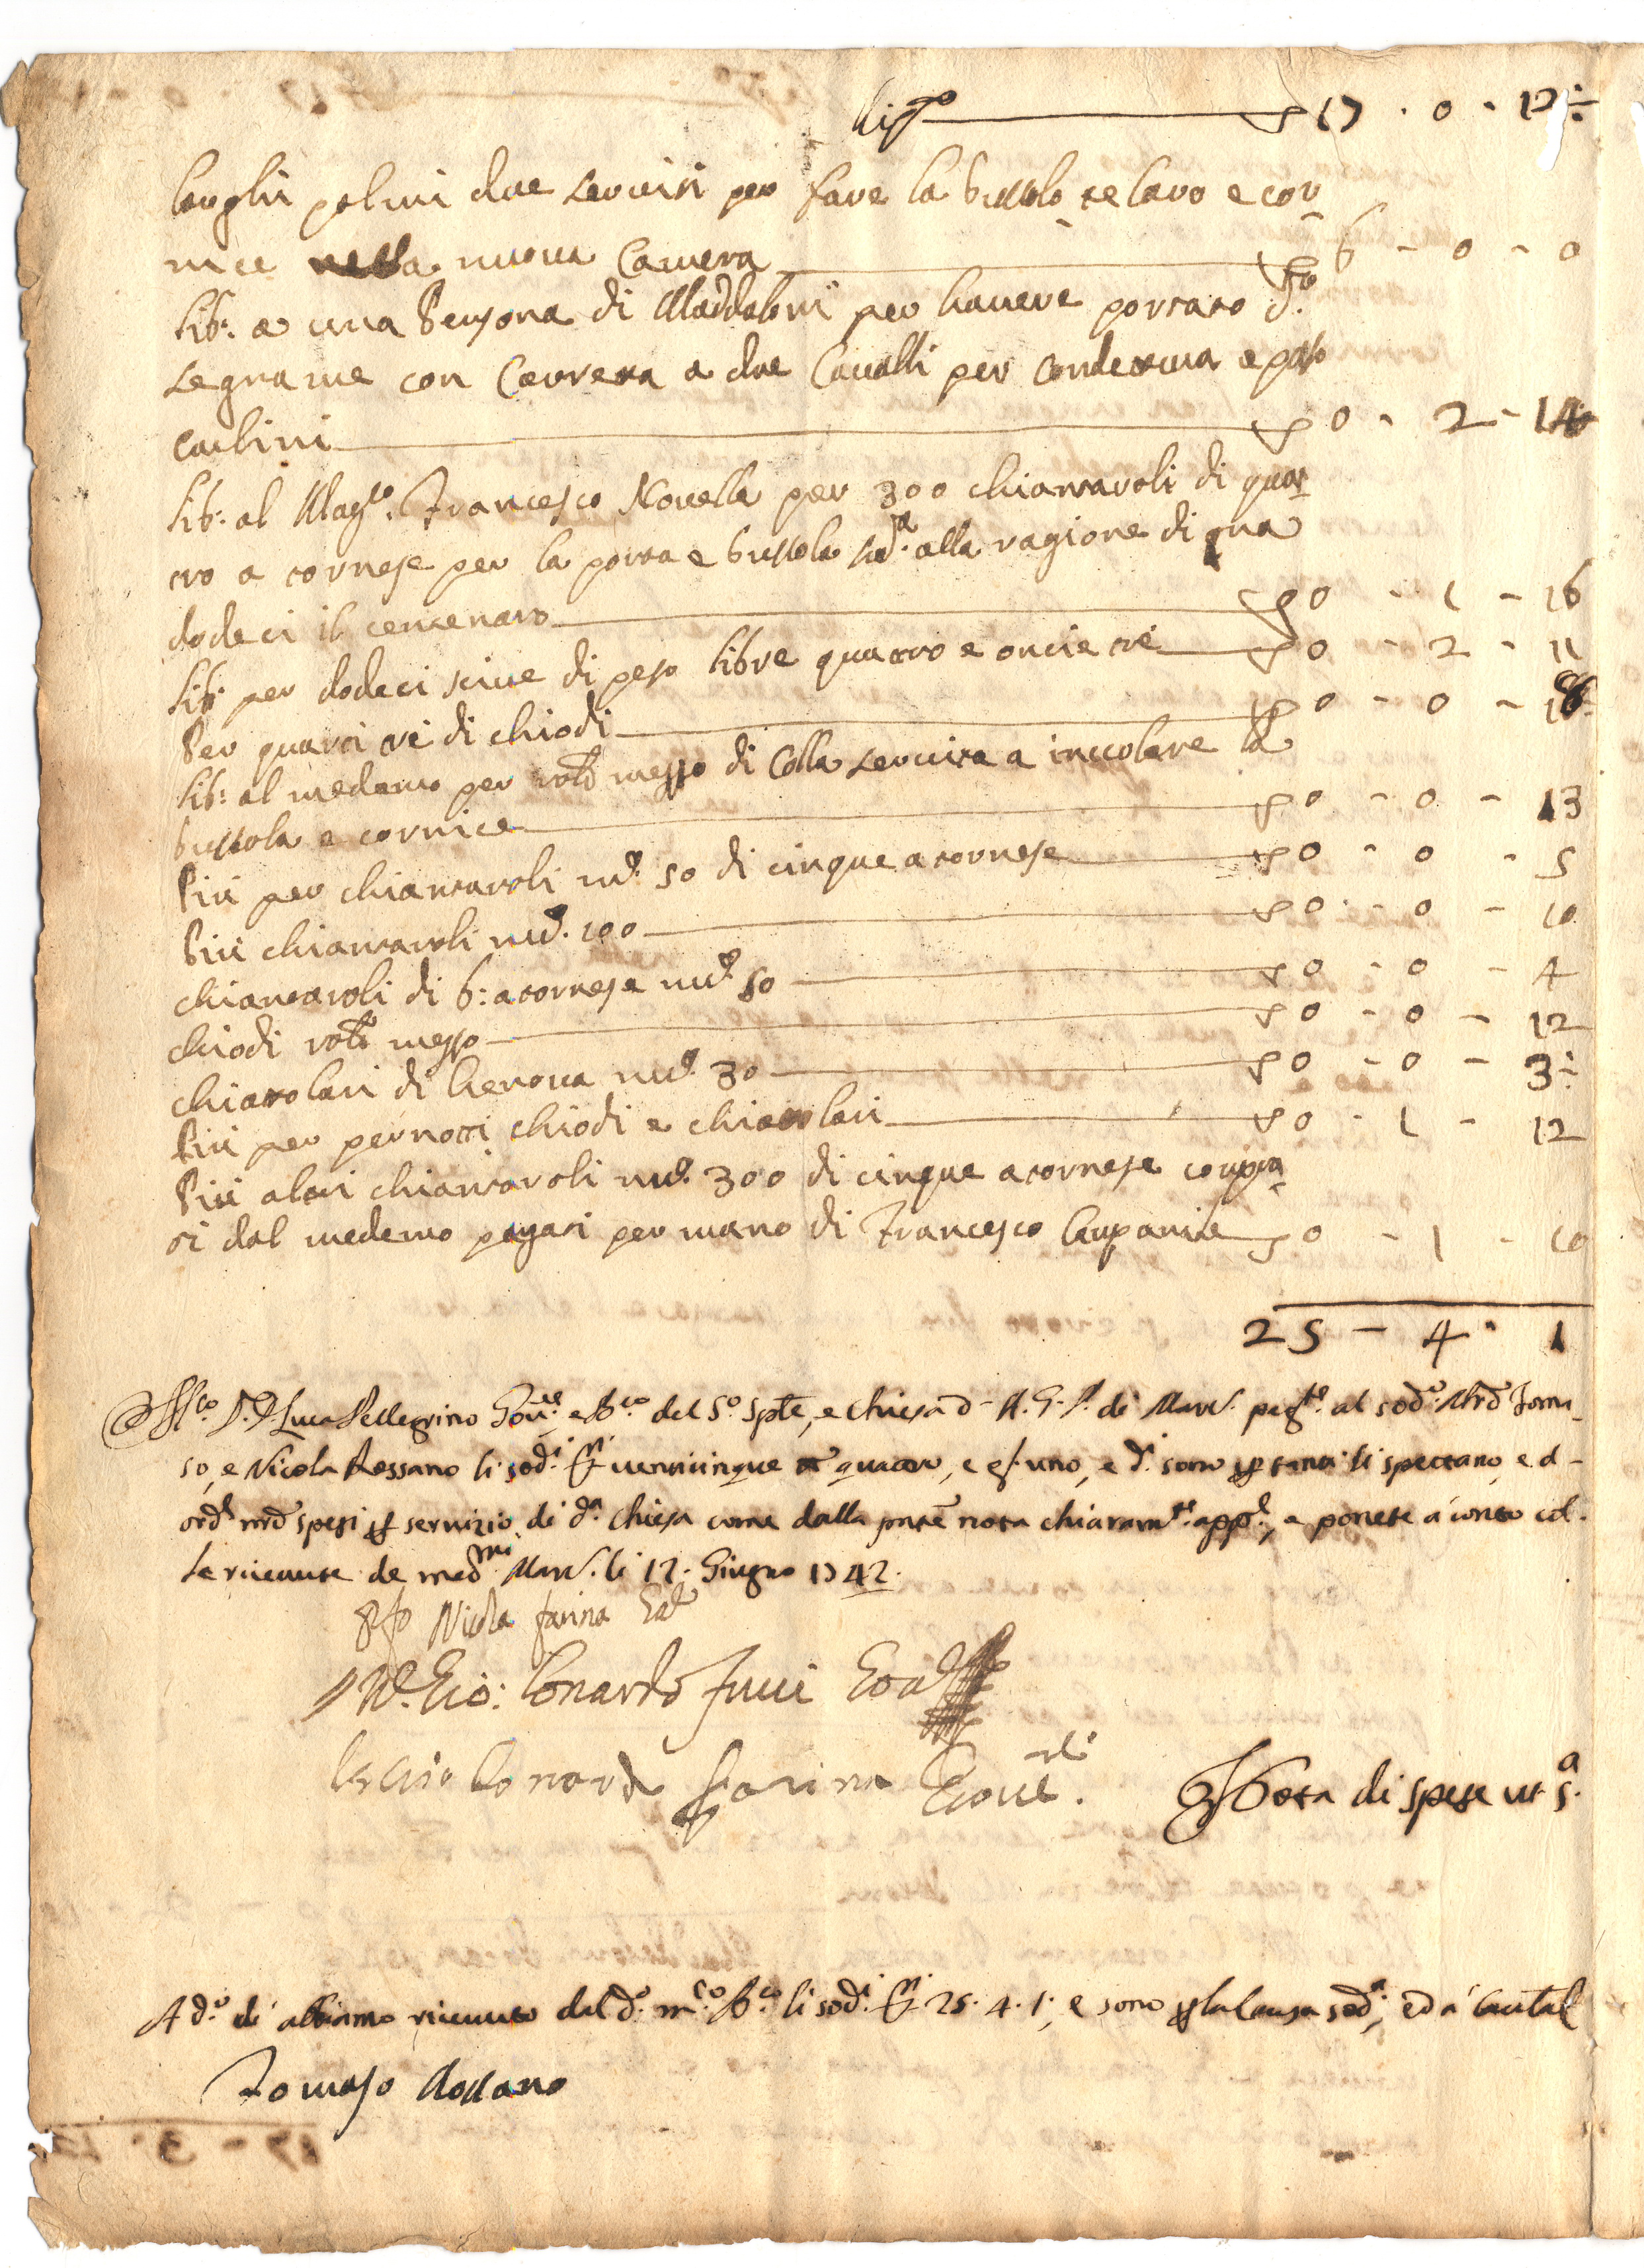 Rip.to 17 - 0 - 12 ÷
longhi palmi due serviti per fare la bussola telaro e cor
nice nella nuova Camera 6 - 0 - 0
lib: a una Persona di Maddaloni per havere portato d.to
legname con Carretta a due Cavalli per condettura e passo
carlini 0 - 2 - 14
lib: al Mag.co Francesco Novella per 300 chiantaroli di quat
tro a tornese per la porta e bussola sud.a alla ragione di gna
dodeci il centenaro 0 - 1 - 16
lib: per dodeci scive di peso libre quattro e oncie tre 0 - 2 - 11
Per quarti tre di chiodi 0 - 0 - 18
lib: al medemo per rot.o mezzo di Colla servita a inccolare la
bussola e cornice 0 - 0 - 13
Più per chiantaroli nu.o 50 di cinque a tornese 0 - 0 - 5
Più chiantaroli nu.o 100 0 - 0 - 10
chiantaroli di 6: a tornese nu.o 50 0 - 0 - 4
chiodi rot.o mezzo 0 - 0 - 12
chiatolari di Genova nu.o 30 0 - 0 - 3 ÷
Più per pernotti chiodi e chiatolari 0 - 1 - 12
Più altri chiantaroli nu.o 300 di cinque a tornese compra
ti dal medemo pagati per mano di Francesco Campanile 0 - 1 - 10
25 - 4 - 1
D. Luca Pellegrino del S.o Spte, e Chiesa d A. G. P. di Marc. pag.te al sod.o M.ro Toma
so, e Nicola Rossano li sod.i venticinque quattro, e gr. uno, e d.i sono per tanti li spettano, e d
ord.e nrd spesi per servizio di d.a Chiesa come dalla pnte nota chiaram.te app.e, e ponete à conto col
le ricevute de med.mi Marc. li 12. Giugno 1742.
Nicola farina
Gio: Lonardo Fucci
Lonardo Farina
Nota di spese ut s.a
A d.o dì abbiamo ricevuto dal d.o m.co li sod.i 25. 4. 1., e sono per la causa sod.a, ed à cautal
Tomaso Rossano